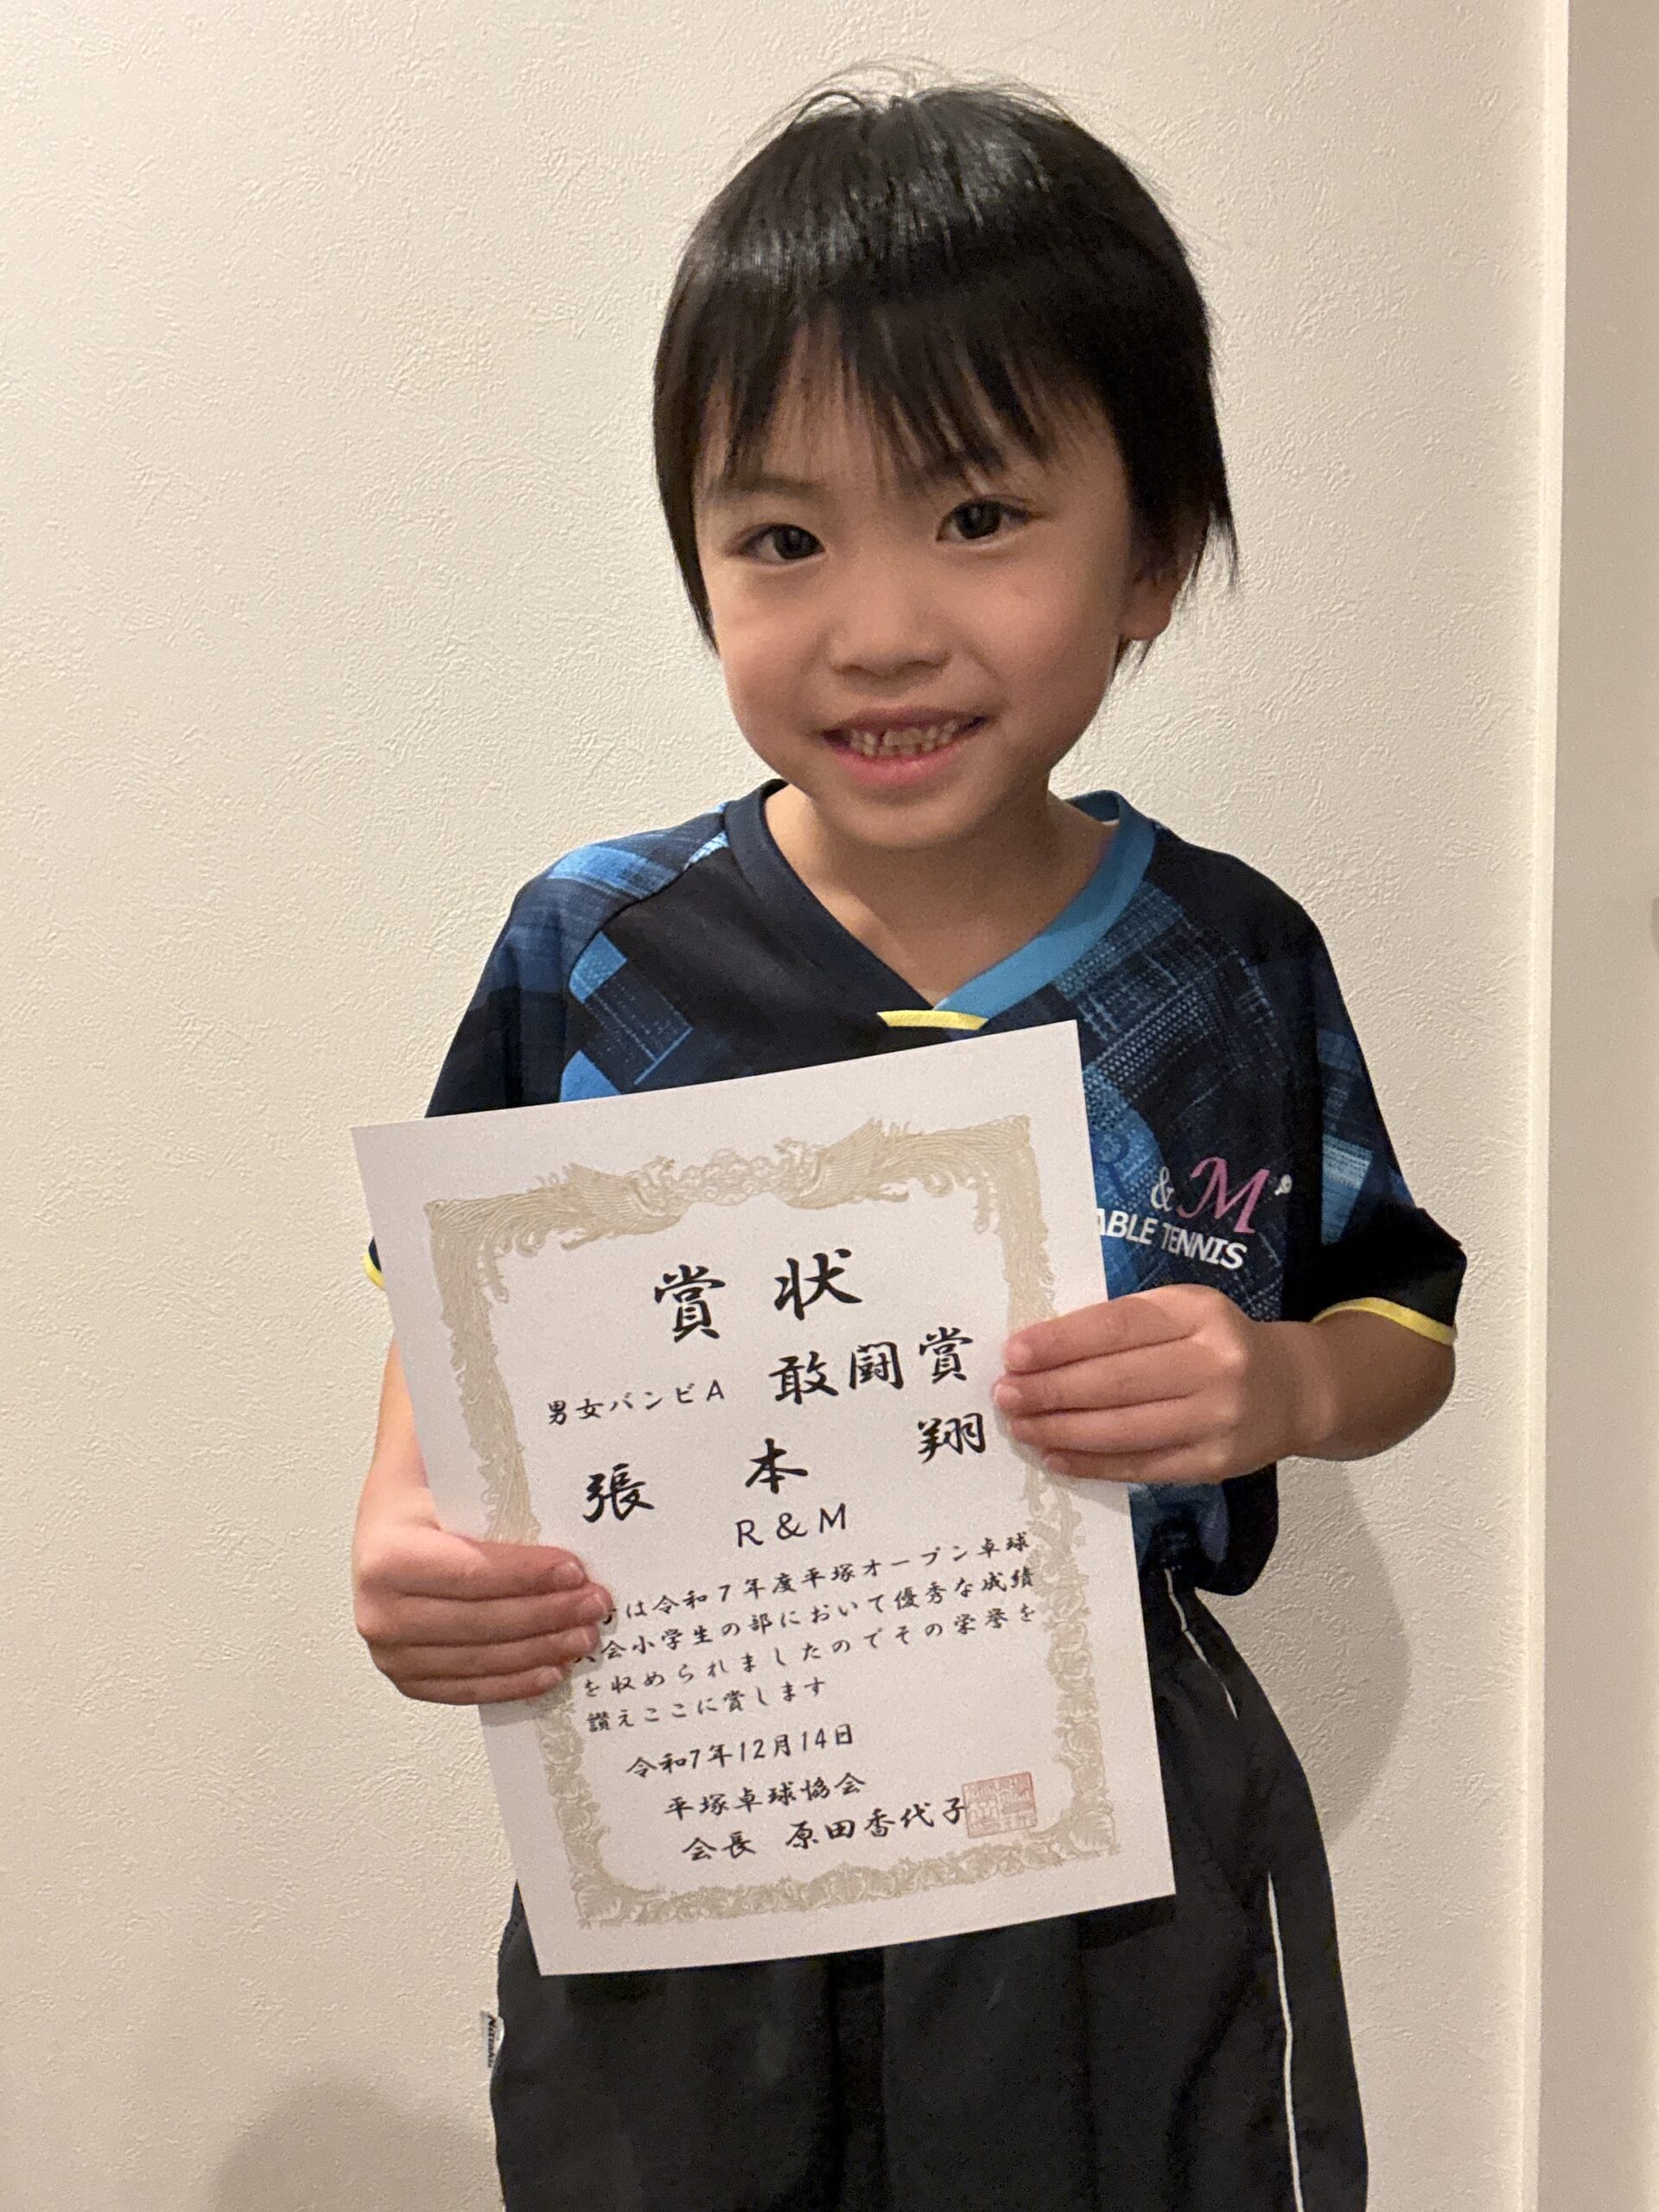 &M
ABLE TENNIS
賞状
男女バンビA 敢闘賞
張本翔
R&M
は令和7年度平塚オープン卓球
会小学生の部において優秀な成績
を収められましたのでその栄誉を
讃えここに賞します
令和7年12月14日
平塚卓球協会
会長 原田香代子